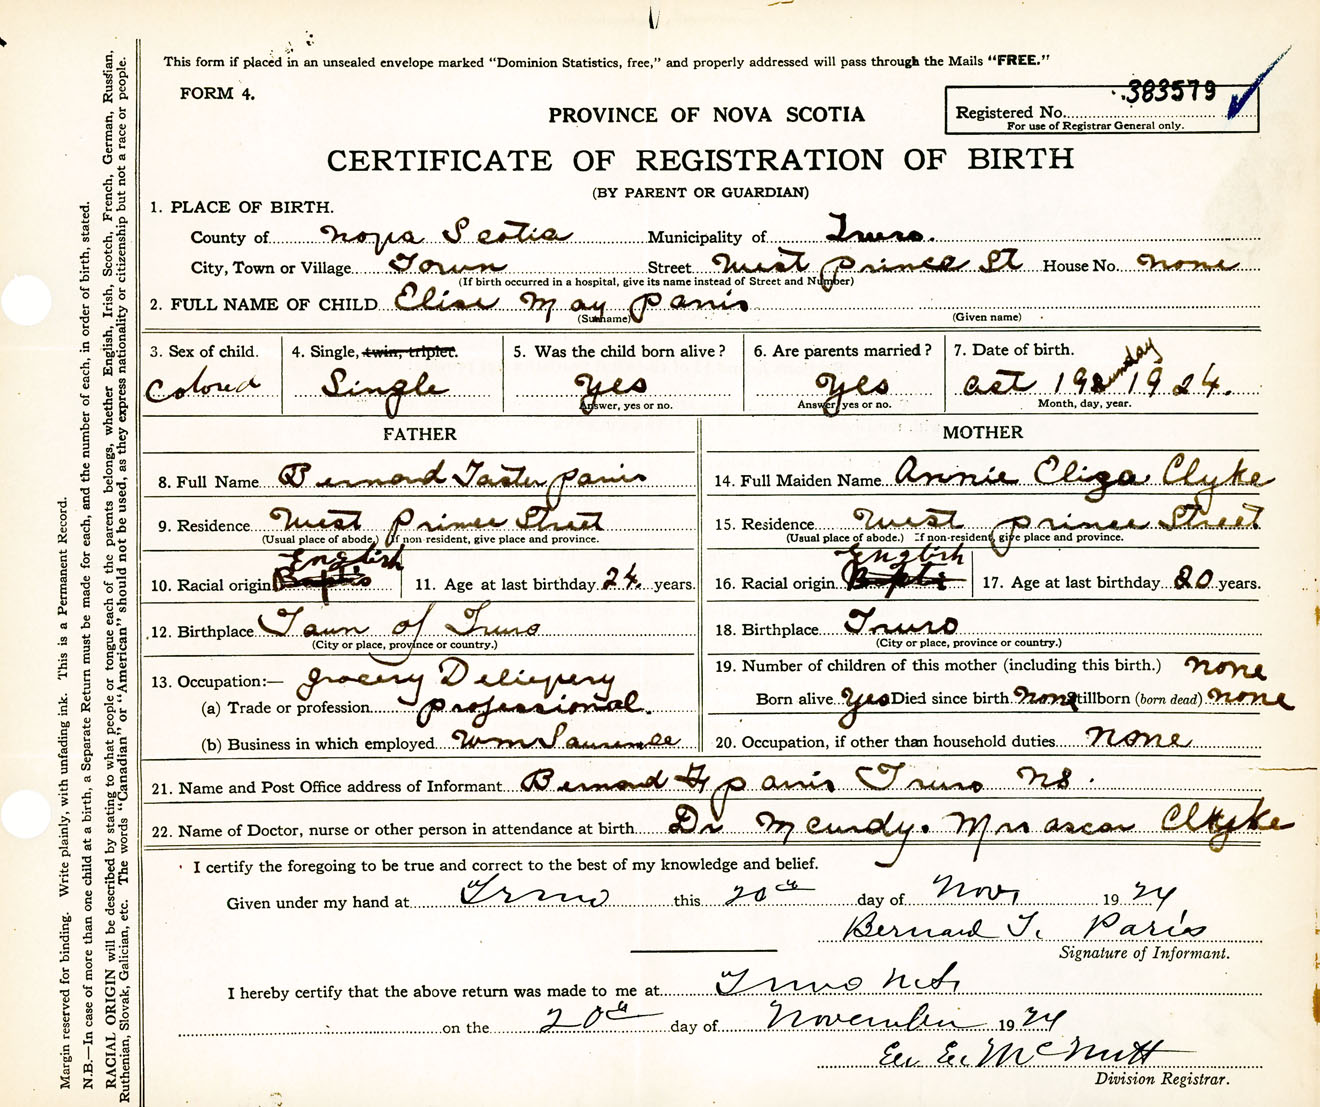 This form if placed in an unsealed envelope marked "Dominion Statistics, free," and properly addressed will pass through the Mails "FREE."
FORM 4.
383579
PROVINCE OF NOVA SCOTIA
Registered No.
For use of Registrar General only.
CERTIFICATE OF REGISTRATION OF BIRTH
(BY PARENT OR GUARDIAN)
1. PLACE OF BIRTH.
County of Nova Scotia Municipality of Truro.
City, Town or Village Town Street West Prince St House No. none
(If birth occurred in a hospital, give its name instead of Street and Number)
2. FULL NAME OF CHILD Elise May Paris
(Surname) (Given name)
3. Sex of child. 4. Single, twin, triplet. 5. Was the child born alive? 6. Are parents married? 7. Date of birth.
Colored Single Yes Yes Oct 19 Sunday 1924.
Answer, yes or no. Answer, yes or no. Month, day, year.
FATHER MOTHER
8. Full Name Bernard Taster Paris 14. Full Maiden Name Annie Eliza Clyke
9. Residence West Prince Street 15. Residence West Prince Street
(Usual place of abode.) If non-resident, give place and province. (Usual place of abode.) If non-resident, give place and province.
English English
10. Racial origin 11. Age at last birthday 24 years. 16. Racial origin 17. Age at last birthday 20 years.
12. Birthplace Town of Truro 18. Birthplace Truro
(City or place, province or country.) (City or place, province or country.)
13. Occupation:— Grocery Delievery 19. Number of children of this mother (including this birth.) none
(a) Trade or profession professional. Born alive Yes Died since birth none Stillborn (born dead) none
(b) Business in which employed Wm Laurence 20. Occupation, if other than household duties none
21. Name and Post Office address of Informant Bernard Paris Truro NS.
22. Name of Doctor, nurse or other person in attendance at birth Dr Mcurdy. Mrs ascar Clyke
I certify the foregoing to be true and correct to the best of my knowledge and belief.
Given under my hand at Truro this 20th day of Nov, 1924
Bernard T. Paris
Signature of Informant.
I hereby certify that the above return was made to me at Truro N.S.
on the 20th day of November 1924
McNutt
Division Registrar.
Margin reserved for binding. Write plainly, with unfading ink. This is a Permanent Record.
N.B.—In case of more than one child at a birth, a Separate Return must be made for each, and the number of each, in order of birth, stated.
RACIAL ORIGIN will be described by stating to what people or tongue each of the parents belongs, whether English, Irish, Scotch, French, German, Russian,
Ruthenian, Slovak, Galician, etc. The words "Canadian" or "American" should not be used, as they express nationality or citizenship but not a race or people.